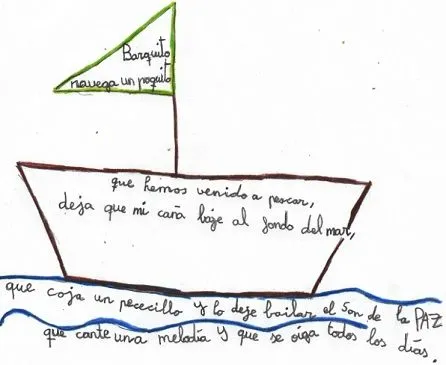 Barquito
navega un poquito
que hemos venido a pescar,
deja que mi caña baje al fondo del mar,
que coja un pececillo y lo deje bailar el son de la PAZ
que cante una melodía y que se oiga todos los días.